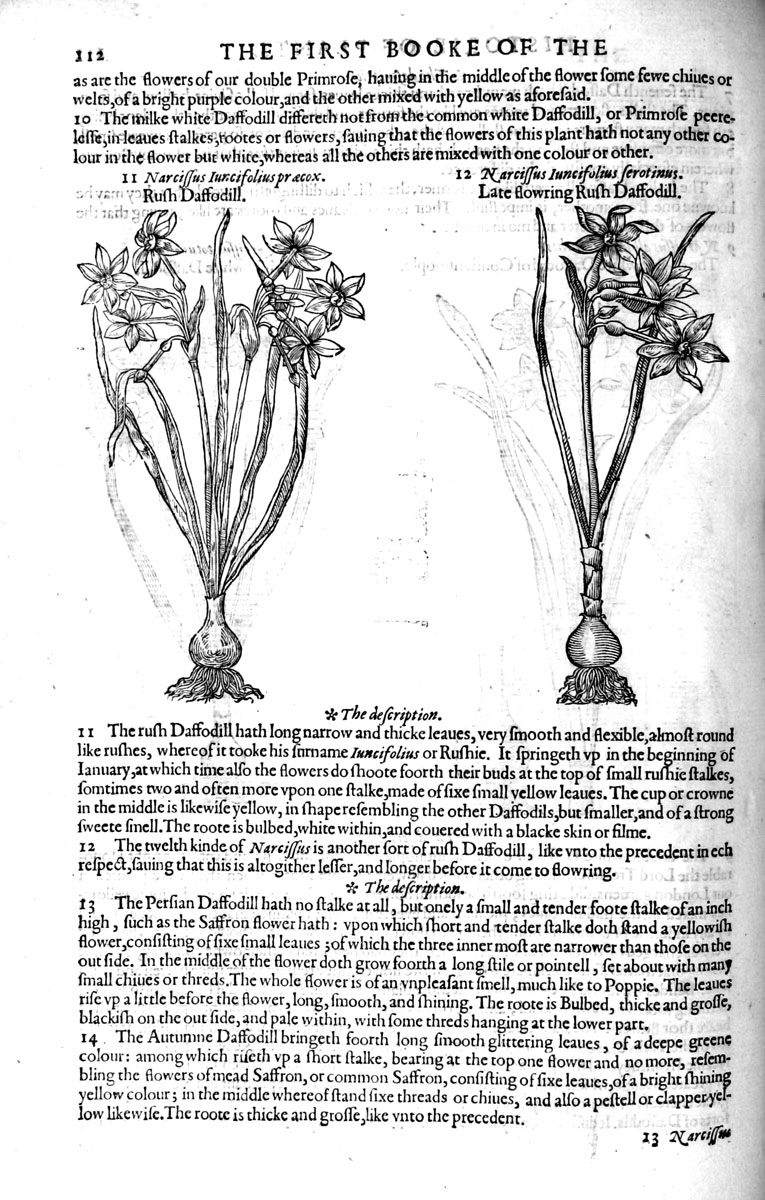 112 THE FIRST BOOKE OF THE
as are the flowers of our double Primroſe, hauing in the middle of the flower ſome fewe chiues or
welts, of a bright purple colour, and the other mixed with yellow as aforeſaid.
10 The milke white Daffodill differeth not from the common white Daffodill, or Primroſe peere-
leſſe, in leaues ſtalkes, rootes or flowers, ſauing that the flowers of this plant hath not any other co-
lour in the flower but white, whereas all the others are mixed with one colour or other.
11 Narciſſus Iuncifolius præcox.
Ruſh Daffodill.
12 Narciſſus Iuncifolius ſerotinus.
Late flowring Ruſh Daffodill.
✻ The deſcription.
11 The ruſh Daffodill hath long narrow and thicke leaues, very ſmooth and flexible, almoſt round
like ruſhes, whereof it tooke his ſurname Iuncifolius or Ruſhie. It ſpringeth vp in the beginning of
Ianuary, at which time alſo the flowers do ſhoote foorth their buds at the top of ſmall ruſhie ſtalkes,
ſomtimes two and often more vpon one ſtalke, made of ſixe ſmall yellow leaues. The cup or crowne
in the middle is likewiſe yellow, in ſhape reſembling the other Daffodils, but ſmaller, and of a ſtrong
ſweete ſmell. The roote is bulbed, white within, and couered with a blacke skin or filme.
12 The twelth kinde of Narciſſus is another ſort of ruſh Daffodill, like vnto the precedent in ech
reſpect, ſauing that this is altogither leſſer, and longer before it come to flowring.
✻ The deſcription.
13 The Perſian Daffodill hath no ſtalke at all, but onely a ſmall and tender foote ſtalke of an inch
high, ſuch as the Saffron flower hath: vpon which ſhort and tender ſtalke doth ſtand a yellowiſh
flower, conſiſting of ſixe ſmall leaues; of which the three inner moſt are narrower than thoſe on the
out ſide. In the middle of the flower doth grow foorth a long ſtile or pointell, ſet about with many
ſmall chiues or threds. The whole flower is of an vnpleaſant ſmell, much like to Poppie. The leaues
riſe vp a little before the flower, long, ſmooth, and ſhining. The roote is Bulbed, thicke and groſſe,
blackiſh on the out ſide, and pale within, with ſome threds hanging at the lower part.
14 The Autumne Daffodill bringeth foorth long ſmooth glittering leaues, of a deepe greene
colour: among which riſeth vp a ſhort ſtalke, bearing at the top one flower and no more, reſem-
bling the flowers of mead Saffron, or common Saffron, conſiſting of ſixe leaues, of a bright ſhining
yellow colour; in the middle whereof ſtand ſixe threads or chiues, and alſo a peſtell or clapper yel-
low likewiſe. The roote is thicke and groſſe, like vnto the precedent.
13 Narciſſus